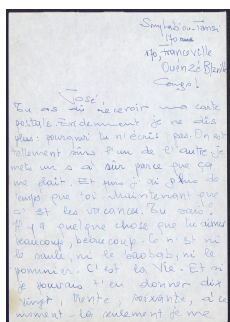 170 rue
Franceville
Ouenzé B/ville
Congo!
José,
Tu as dû recevoir ma carte
postale. Evidemment je ne dis
plus: pourquoi tu n'écris pas. On est
tellement sûrs l'un de l'autre. Je
mets un s à sûr parce que ça
me plaît. Et puis j'ai plus de
temps que toi maintenant que
c'est les vacances. Tu sais:
Il y a quelque chose que tu aimes
beaucoup, beaucoup. Ce n'est ni
le saule, ni le baobab, ni le
pommier. C'est la Vie. Et si
je pouvais t'en donner dix
vingt, trente, soixante, à ce
moment-là seulement je me